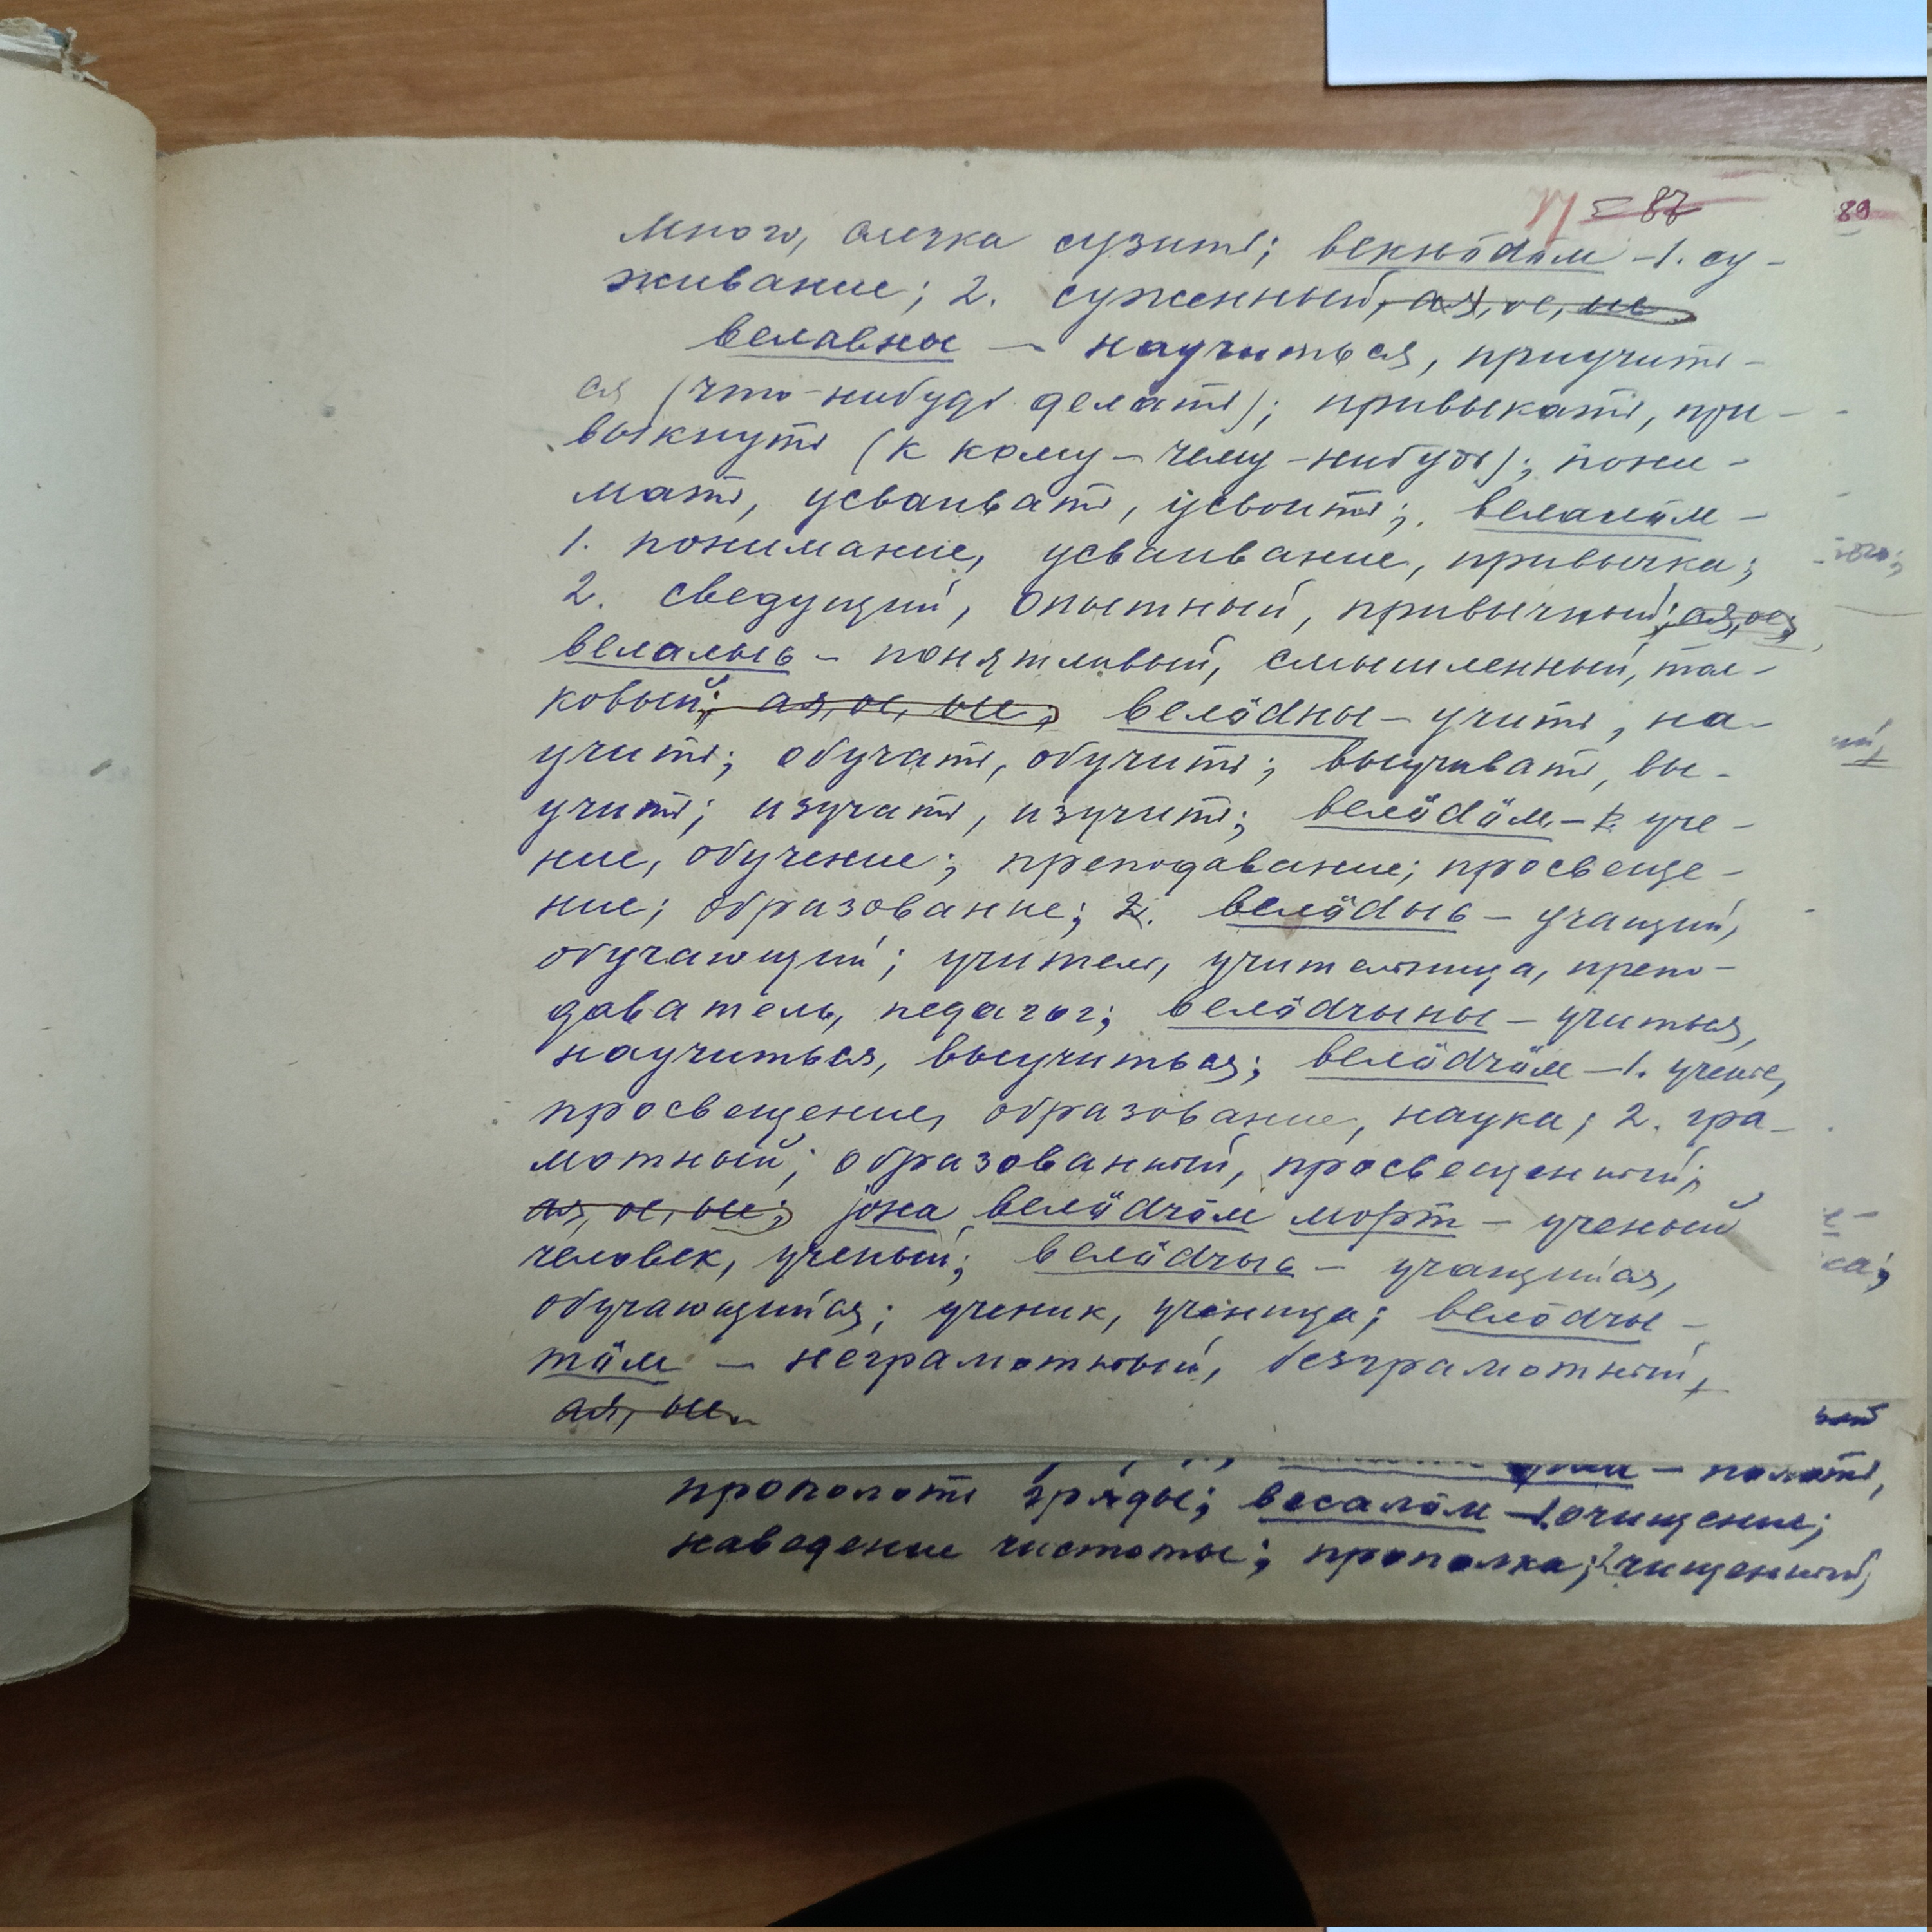 87 89
много, слегка сузить; векньöдöм – 1. су-
живание; 2. суженный, ая, ое, ые
велавны – научиться, приучить-
ся (что-нибудь делать); привыкать, при-
выкнуть (к кому-чему-нибудь); пони-
мать, усваивать, усвоить; велалöм –
1. понимание, усваивание, привычка;
2. сведущий, опытный, привычный; ая, ое,
велалысь – понятливый, смышленный, тол-
ковый; ая, ое, ые; велöдны – учить, на-
учить; обучать, обучить; выучивать, вы-
учить; изучать, изучить; велöдöм – 1. уче-
ние, обучение; преподавание; просвеще-
ние; образование; 2. велöдысь – учащий,
обучающий; учитель, учительница, препо-
даватель, педагог; велöдчыны – учиться,
научиться, выучиться; велöдчöм – 1. учение,
просвещение, образование, наука; 2. гра-
мотный; образованный, просвещенный;
ая, ое, ые; јона велöдчöм морт – ученый
человек, ученый; велöдчысь – учащийся,
обучающийся; ученик, ученица; велöдчы-
тöм – неграмотный, безграмотный,
ая, ые.
– полоть,
прополоть гряды; весалöм – 1. очищение;
наведение чистоты; прополка; 2. чищенный,